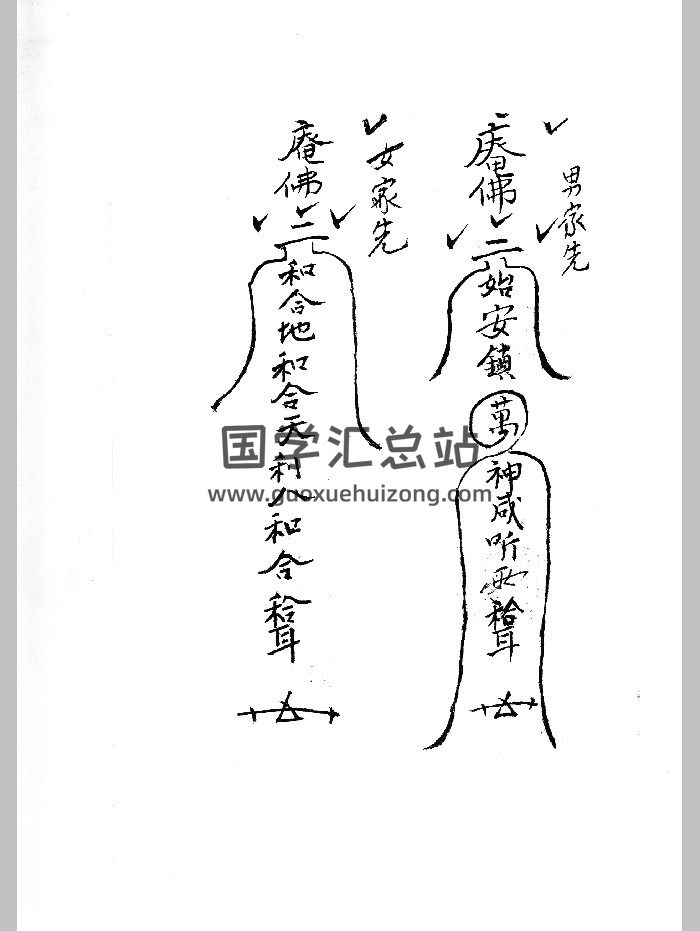 男家先
佛
二
始安鎮
萬
神咸听
女家先
庵佛
二
和合地和合天利人和合
国学汇总站
www.guoxuehuizong.com